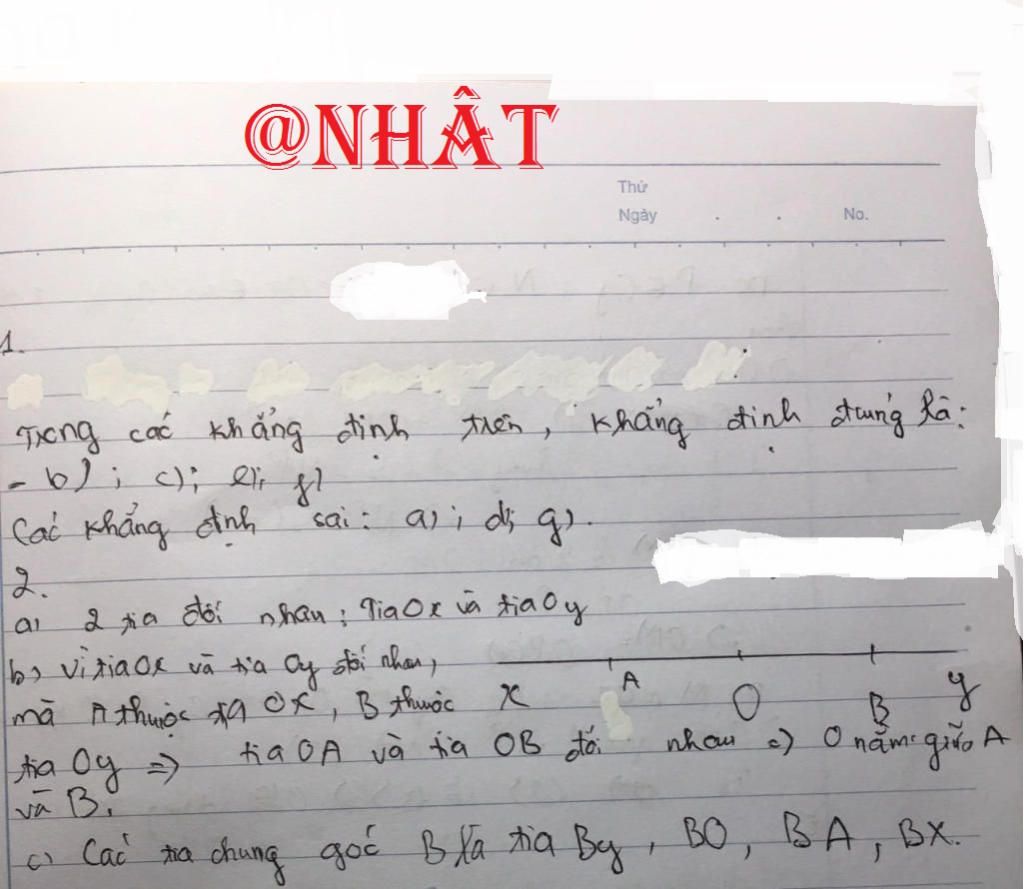 @NHẬT
Thứ
Ngày . . No.
1.
Trong các khẳng định trên, khẳng định đúng là:
- b); c); e); f)
Các khẳng định sai: a); d); g).
2.
a) 2 tia đối nhau: Tia Ox và tia Oy
b) vì tia Ox và tia Oy đối nhau,
mà A thuộc tia OX, B thuộc
x A O B y
tia Oy => tia OA và tia OB đối nhau => O nằm giữa A
và B.
c) Các tia chung gốc B là tia By, BO, BA, BX.